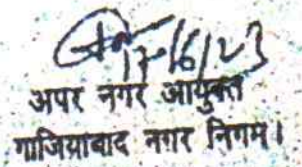 17/6/23
अपर नगर आयुक्त
गाजियाबाद नगर निगम।